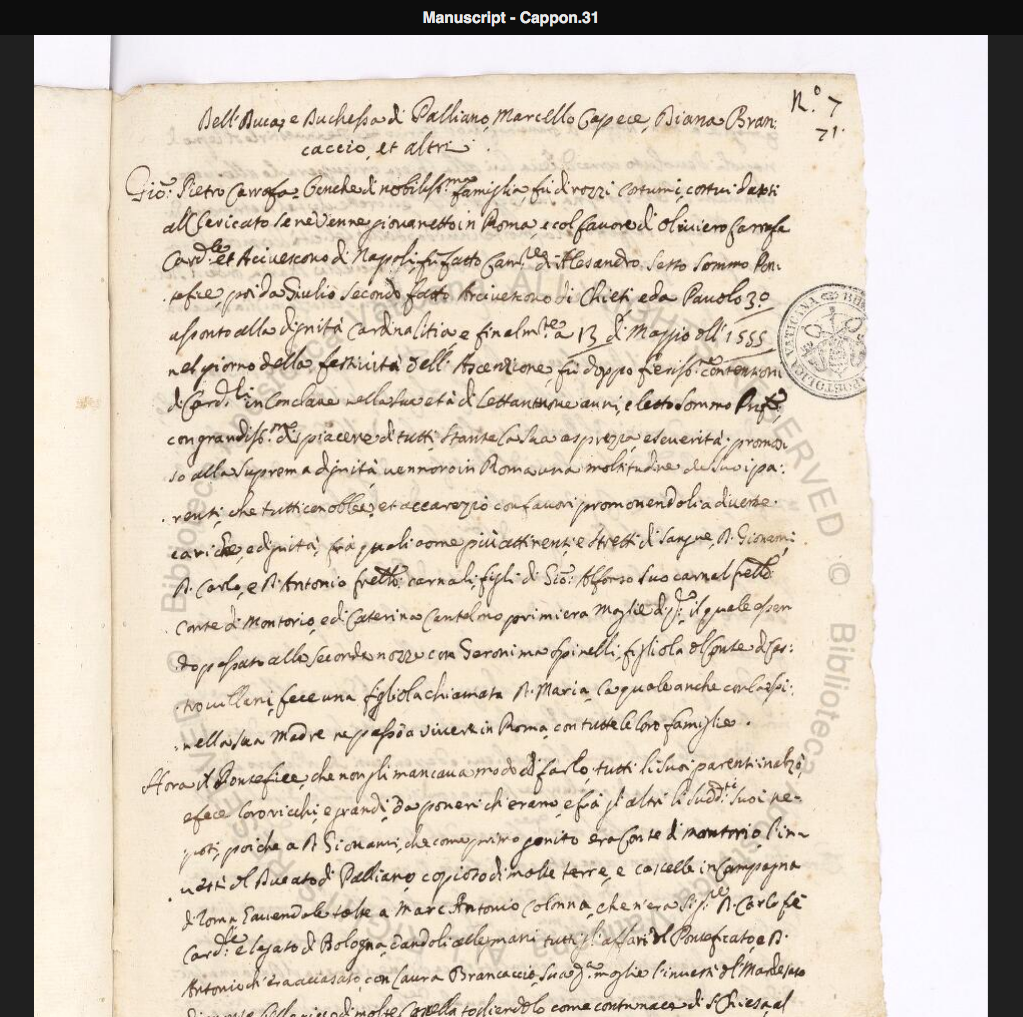 Manuscript - Cappon.31
N.º 7
71.
Dell Duca, e Duchessa di Palliano, Marcello Capece, Diana Bran:
caccio, et altri
Gio: Pietro Carrafa, benche di nobiliss.mo famiglia, fù di rozzi costumi, costui datosi
all Clericato se ne venne giovanetto in Roma, e col favore di Oliviero Carrafa
Card.le et Arcivescovo di Napoli, fù fatto Cam.re di Alesandro Sesto Sommo Pon:
tefice, poi da Giulio Secondo fatto Arcivescovo di Chieti, e da Pavolo 3º
asponto alla dignità Cardinalitia, e finalm.te a 13 di Maggio dell' 1555
nel giorno della festività dell' Ascenzione, fù doppo fieriss.e contenzioni
di Card.li in Conclave nella sua età di settantanove anni, eletto Sommo Pnfce
con grandiss.mo dispiacere di tutti, stante la sua asprezza, e severità. promo:
so alla suprema dignità vennero in Roma una moltitudine de suoi pa:
renti, che tutti conobbe, et accarezzò con favori promovendoli a diverse
cariche, e dignità, frà quali come più attinenti, e stretti di sangue, D. Giovanni
D. Carlo, e D. Antonio frelli carnali, figli di Gio: Alfonso suo carnal frello
Conte di Montorio, e di Caterina Cantelmo primiera Moglie di q:o, il quale essen
do passato alle seconde nozze con Geronima Spinelli, figliola del Conte di Cas:
trovillani, fece una figliola chiamata D. Maria, la quale anche con la Spi:
nella sua Madre ne passò a vivere in Roma, con tutte le loro famiglie.
Hora il Pontefice, che non gli mancava modo di farlo, tutti li suoi parenti inalzò,
e fece loro ricchi, e grandi, da poveri ch'erano, e frà gl'altri li sudd.ti suoi ne-
poti, poiche a D. Giovanni, che come primo genito era Conte di Montorio, l'in-
vestì del Ducato di Palliano, copioso di molte terre, e castelle in Campagna
di Roma havendole tolte a Marc'Antonio Colonna, che n'era Sig.re D. Carlo fè
Card.le e legato di Bologna, dandoli alle mani tutti gl'affari del Pontificato, e D.
Antonio ch'era accasato con Laura Brancaccio, sua p.a moglie l'investì del Marchesato
di molte Castella togliendolo come contumace di S. Chiesa, al